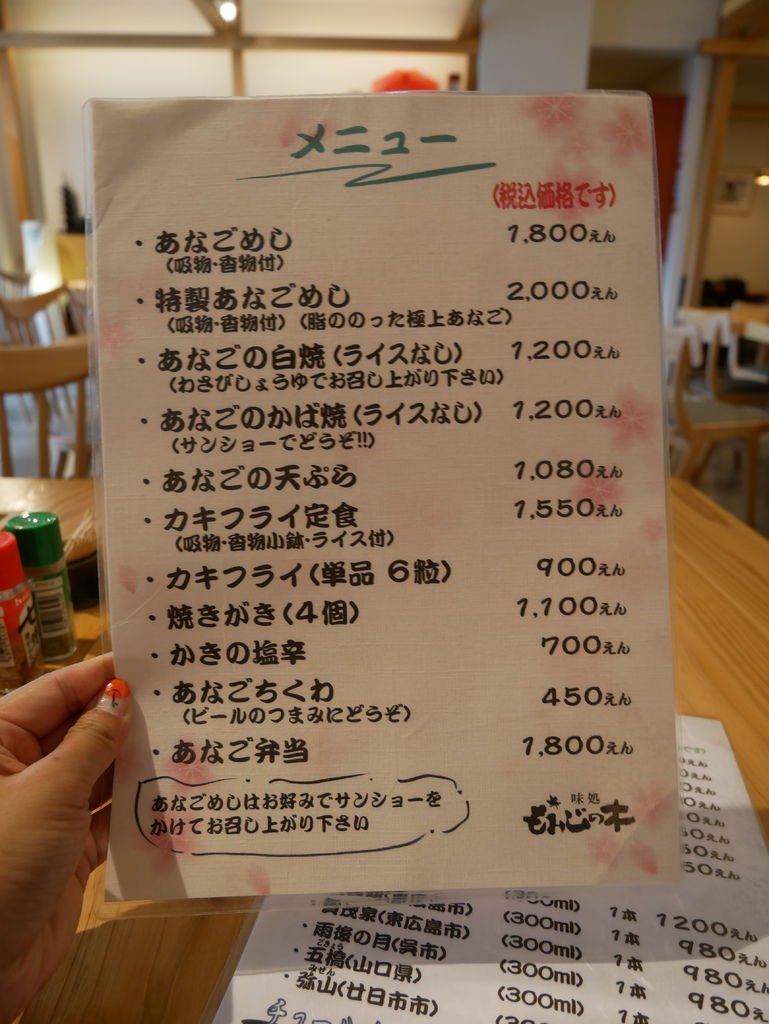 メニュー
(税込価格です)
・あなごめし 1,800えん
(吸物・香物付)
・特製あなごめし 2,000えん
(吸物・香物付)(脂ののった極上あなご)
・あなごの白焼(ライスなし) 1,200えん
(わさびしょうゆでお召し上がり下さい)
・あなごのかば焼(ライスなし) 1,200えん
(サンショーでどうぞ!!)
・あなごの天ぷら 1,080えん
・カキフライ定食 1,550えん
(吸物・香物小鉢・ライス付)
・カキフライ(単品 6粒) 900えん
・焼きがき(4個) 1,100えん
・かきの塩辛 700えん
・あなごちくわ 450えん
(ビールのつまみにどうぞ)
・あなご弁当 1,800えん
あなごめしはお好みでサンショーを
かけてお召し上がり下さい
味処
もみじの木
です)
えん
0えん
0えん
0えん
50えん
50えん
50えん
(300ml) 1本 1200えん
茂泉(東広島市) (300ml) 1本 980えん
・雨後の月(呉市) (300ml) 1本 980えん
ごきょう
・五橋(山口県) (300ml) 1本 980えん
みせん
・弥山(廿日市市) (300ml)